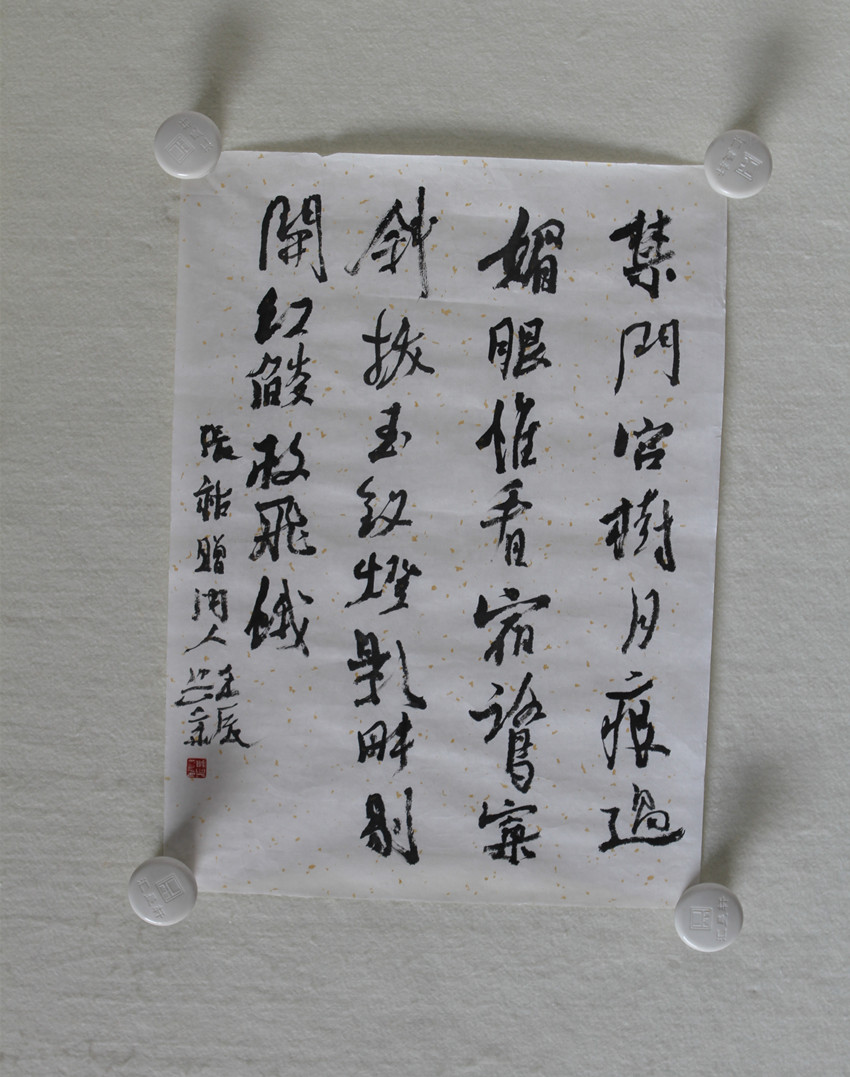 禁門宮樹月痕過
媚眼惟看宿鷺窠
斜拔玉釵燈影畔剔
開紅燄救飛蛾
張祜贈内人
壬辰